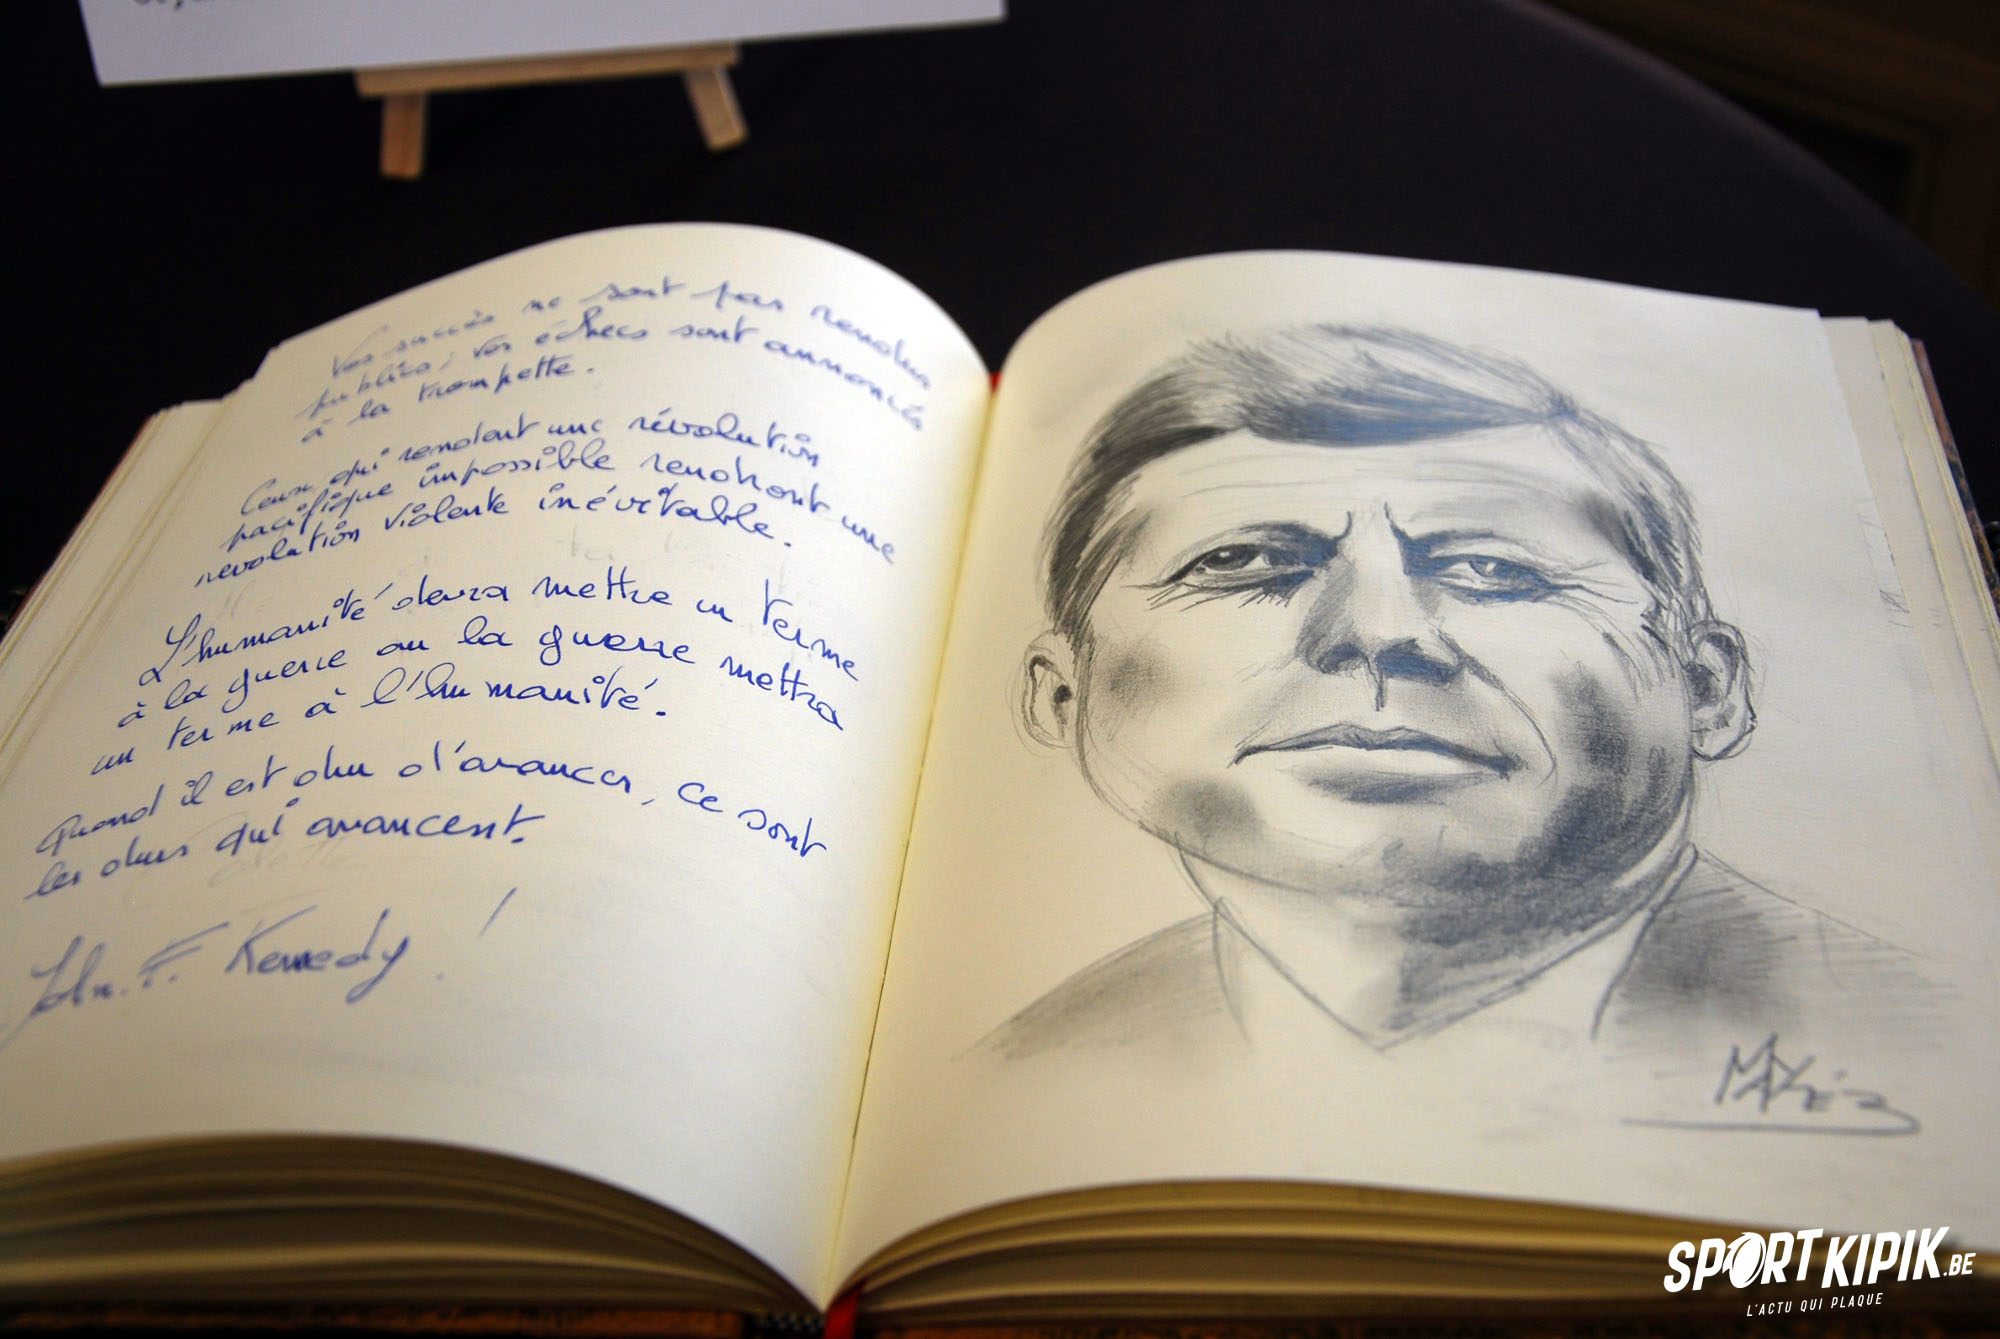 Vos succès ne sont pas rendus
publics ; vos échecs sont annoncés
à la trompette.
Ceux qui rendent une révolution
pacifique impossible rendront une
revolution violente inévitable.
L'humanité devra mettre un terme
à la guerre ou la guerre mettra
un terme à l'humanité.
Quand il est dur d'avancer, ce sont
les durs qui avancent.
John. F. Kennedy !
SPORTKIPIK.BE
L'ACTU QUI PLAQUE